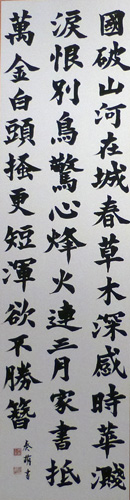 國破山河在城春草木深感時華濺
淚恨別鳥驚心烽火連三月家書抵
萬金白頭搔更短渾欲不勝簪